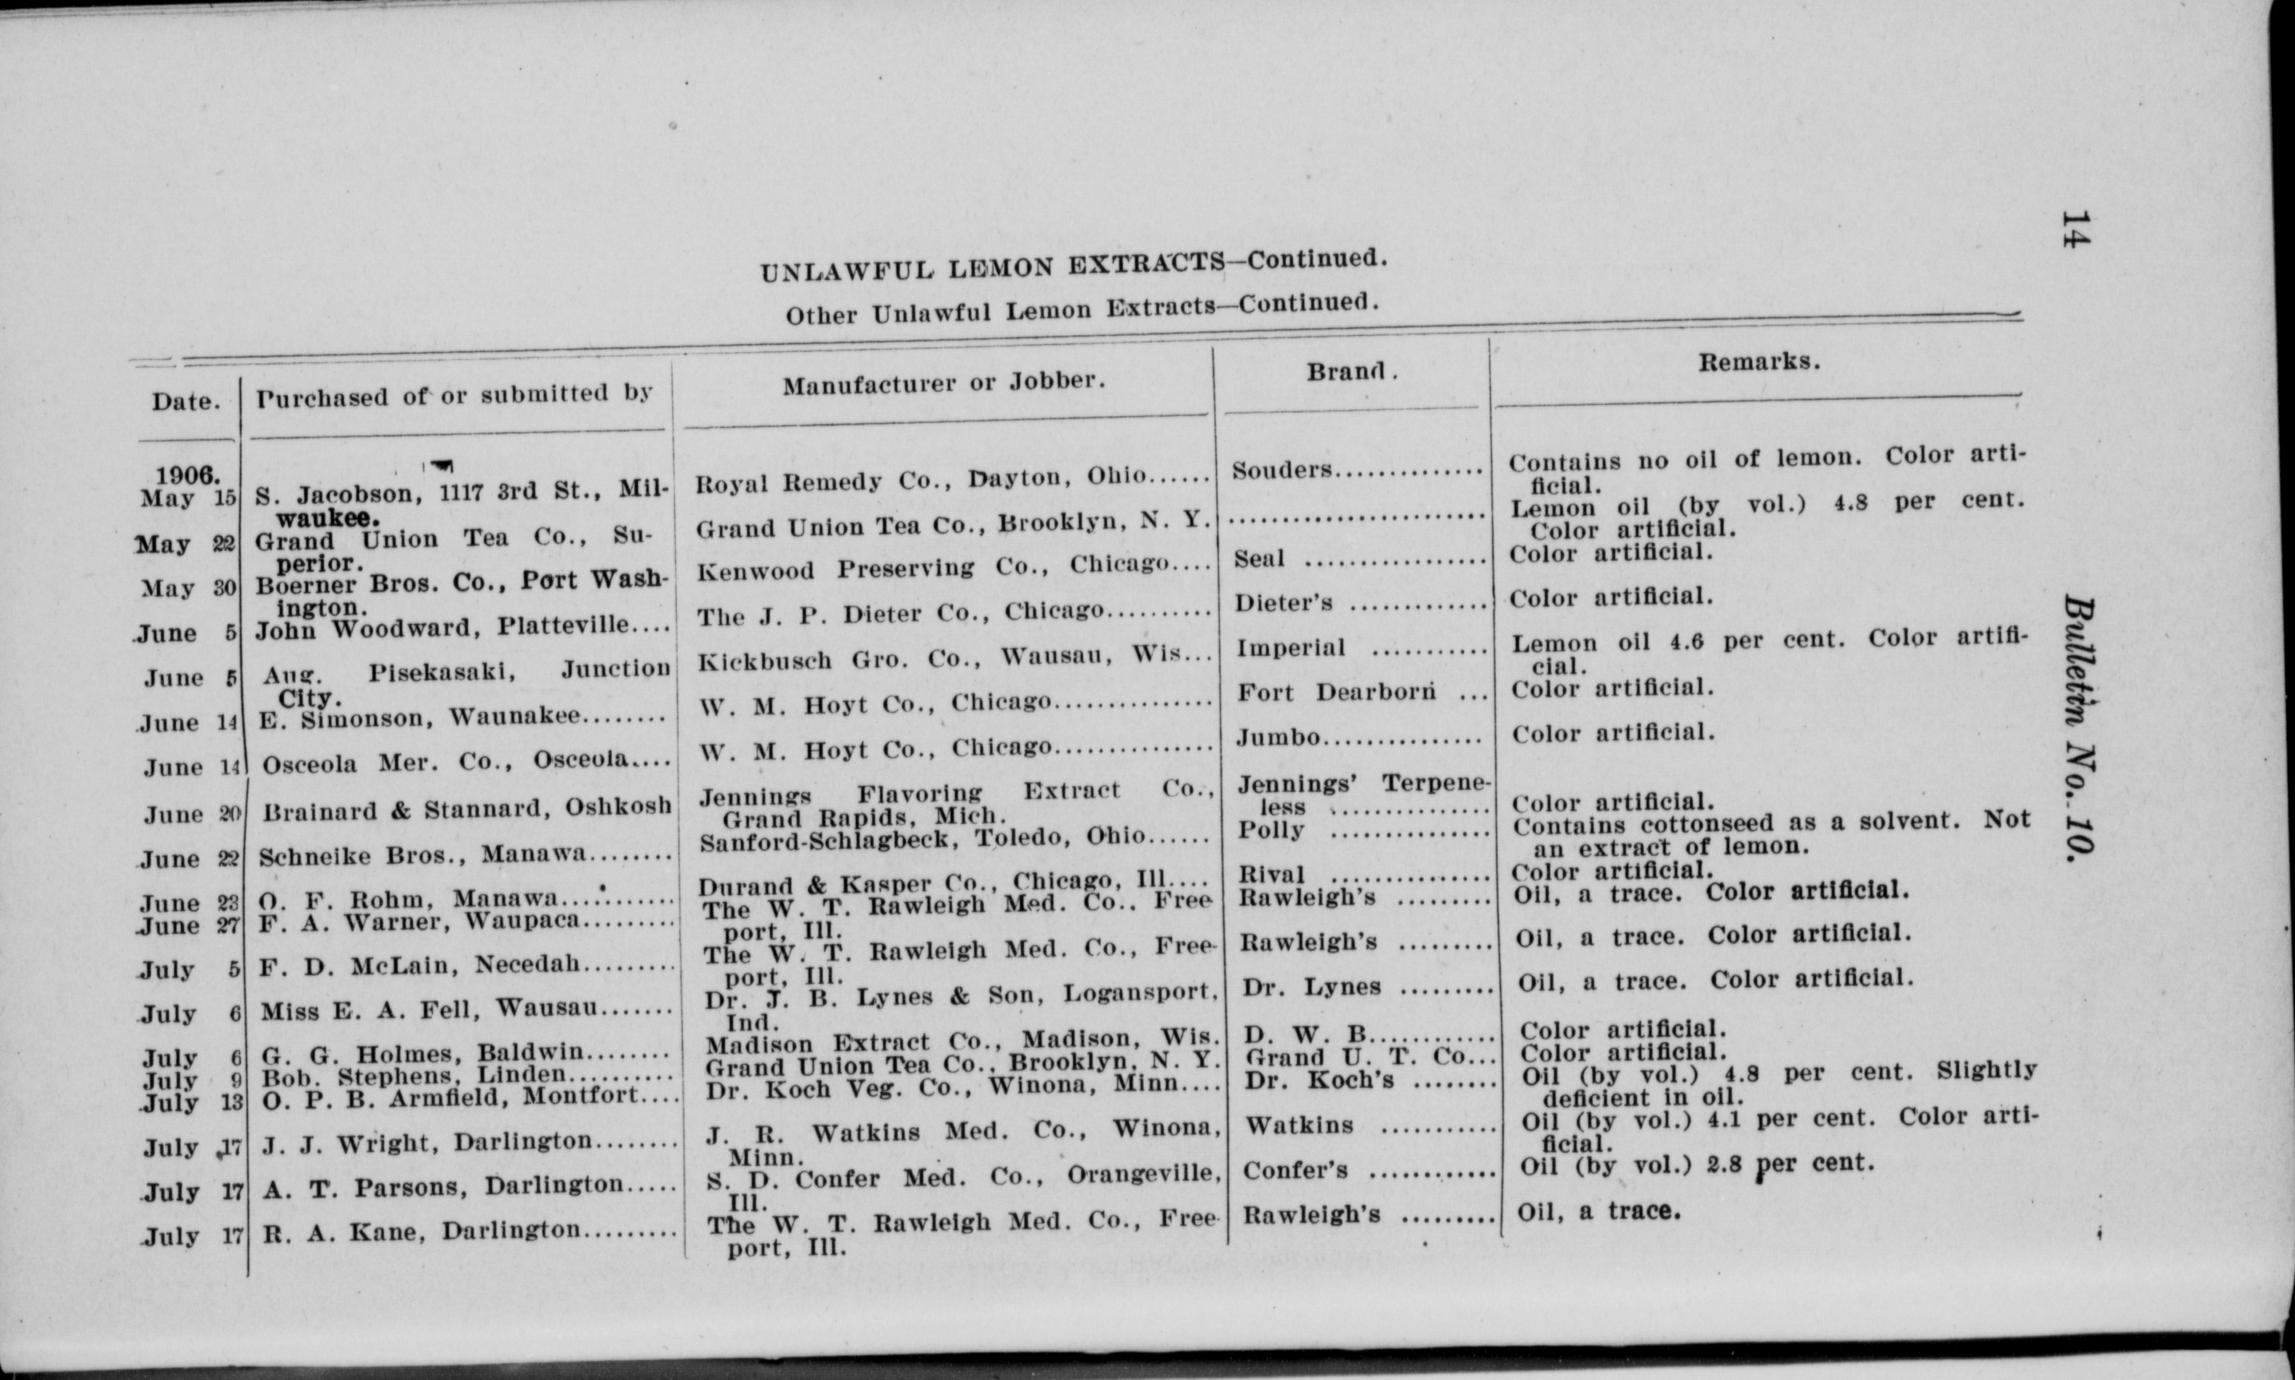 14
Bulletin No. 10.
UNLAWFUL LEMON EXTRACTS—Continued.
Other Unlawful Lemon Extracts—Continued.
Date. Purchased of or submitted by Manufacturer or Jobber. Brand. Remarks.
1906.
May 15 S. Jacobson, 1117 3rd St., Mil- Royal Remedy Co., Dayton, Ohio...... Souders.............. Contains no oil of lemon. Color arti-
waukee. ficial.
May 22 Grand Union Tea Co., Su- Grand Union Tea Co., Brooklyn, N. Y. ........................ Lemon oil (by vol.) 4.8 per cent.
perior. Color artificial.
May 30 Boerner Bros. Co., Port Wash- Kenwood Preserving Co., Chicago.... Seal ................. Color artificial.
ington.
June 5 John Woodward, Platteville.... The J. P. Dieter Co., Chicago.......... Dieter's ............. Color artificial.
June 5 Aug. Pisekasaki, Junction Kickbusch Gro. Co., Wausau, Wis... Imperial ........... Lemon oil 4.6 per cent. Color artifi-
City. cial.
June 14 E. Simonson, Waunakee........ W. M. Hoyt Co., Chicago............... Fort Dearborn ... Color artificial.
June 14 Osceola Mer. Co., Osceola.... W. M. Hoyt Co., Chicago............... Jumbo............... Color artificial.
June 20 Brainard & Stannard, Oshkosh Jennings Flavoring Extract Co., Jennings' Terpene-
Grand Rapids, Mich. less ............... Color artificial.
June 22 Schneike Bros., Manawa........ Sanford-Schlagbeck, Toledo, Ohio...... Polly ............... Contains cottonseed as a solvent. Not
an extract of lemon.
June 23 O. F. Rohm, Manawa........... Durand & Kasper Co., Chicago, Ill.... Rival ............... Color artificial.
June 27 F. A. Warner, Waupaca......... The W. T. Rawleigh Med. Co., Free- Rawleigh's ......... Oil, a trace. Color artificial.
port, Ill.
July 5 F. D. McLain, Necedah......... The W. T. Rawleigh Med. Co., Free- Rawleigh's ......... Oil, a trace. Color artificial.
port, Ill.
July 6 Miss E. A. Fell, Wausau....... Dr. J. B. Lynes & Son, Logansport, Dr. Lynes ......... Oil, a trace. Color artificial.
Ind.
July 6 G. G. Holmes, Baldwin........ Madison Extract Co., Madison, Wis. D. W. B............ Color artificial.
July 9 Bob. Stephens, Linden.......... Grand Union Tea Co., Brooklyn, N. Y. Grand U. T. Co... Color artificial.
July 13 O. P. B. Armfield, Montfort.... Dr. Koch Veg. Co., Winona, Minn.... Dr. Koch's ........ Oil (by vol.) 4.8 per cent. Slightly
deficient in oil.
July 17 J. J. Wright, Darlington........ J. R. Watkins Med. Co., Winona, Watkins ........... Oil (by vol.) 4.1 per cent. Color arti-
Minn. ficial.
July 17 A. T. Parsons, Darlington..... S. D. Confer Med. Co., Orangeville, Confer's ............ Oil (by vol.) 2.8 per cent.
Ill.
July 17 R. A. Kane, Darlington......... The W. T. Rawleigh Med. Co., Free- Rawleigh's ......... Oil, a trace.
port, Ill.